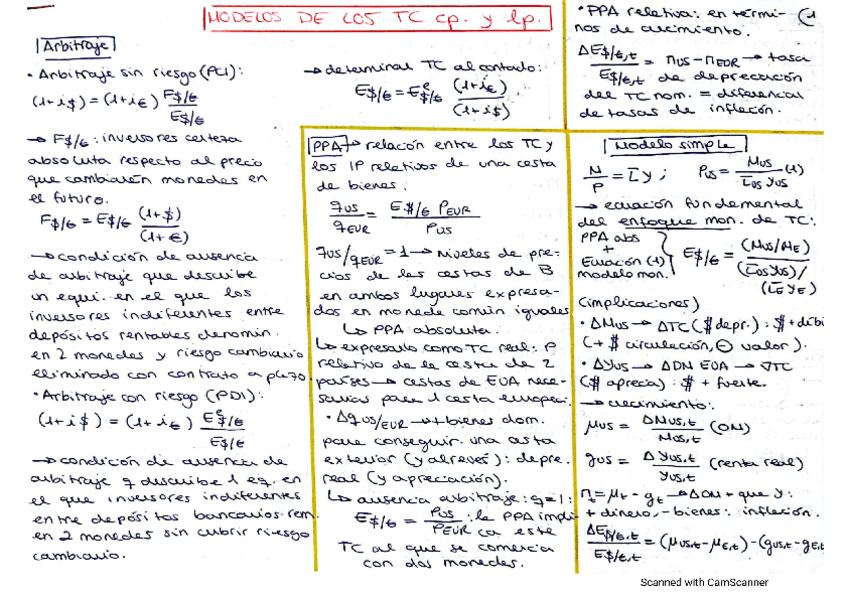 MODELOS DE LOS TC cp. y lp.
Arbitraje
• Arbitraje sin riesgo (PCI):
(1+i$) = (1+i€) F$/€ / E$/€
→ F$/€: inversores certeza
absoluta respecto al precio
que cambiarán monedas en
el futuro.
F$/€ = E$/€ (1+$) / (1+€)
→ condición de ausencia
de arbitraje que describe
un equi. en el que los
inversores indiferentes entre
depósitos rentables denomin.
en 2 monedas y riesgo cambiario
eliminado con contrato a plazo.
• Arbitraje con riesgo (PDI):
(1+i$) = (1+i€) Eᵉ$/€ / E$/€
→ condición de ausencia de
arbitraje q describe 1 eq. en
el que inversores indiferentes
entre depósitos bancarios rem.
en 2 monedas sin cubrir riesgo
cambiario.
→ determinar TC al contado:
E$/€ = Eᵉ$/€ (1+i€) / (1+i$)
PPA → relación entre los TC y
los IP relativos de una cesta
de bienes.
qUS / qEUR = E$/€ PEUR / PUS
qUS/qEUR = 1 → niveles de pre-
cios de las cestas de B
en ambos lugares expresa-
dos en moneda común iguales
↳ PPA absoluta.
↳ expresarlo como TC real: P
relativo de la cesta de 2
países → cestas de EUA nece-
sarias para 1 cesta europea.
• ΔqUS/EUR → + bienes dom.
para conseguir una cesta
exterior (y alrevés): depre.
real (y apreciación).
↳ ausencia arbitraje: q=1:
E$/€ = PUS / PEUR : la PPA impli-
ca este
TC al que se comercia
con dos monedas.
• PPA relativa: en térmi-
nos de crecimiento.
ΔE$/€,t / E$/€,t = πUS - πEUR → tasa
de depreciación
del TC nom. = diferencial
de tasas de inflación.
Modelo simple
M/P = L̄Y ; PUS = MUS / L̄US YUS (1)
→ ecuación fundamental
del enfoque mon. de TC:
PPA abs
+
Ecuación (1)
modelo mon.
E$/€ = (MUS/ME) / (L̄US YUS)/(L̄E YE)
(implicaciones)
• ΔMUS → ΔTC ($ depr.): $ + débi
(+ $ circulación, ⊖ valor).
• ΔYUS → ΔDN EUA → ∇TC
($ aprecia): $ + fuerte.
→ crecimiento:
μUS = ΔMUS,t / MUS,t (OM)
gUS = ΔYUS,t / YUS,t (renta real)
πt = μt - gt → ΔOM + que Y:
+ dinero, - bienes: inflación.
ΔE$/€,t / E$/€,t = (μUS,t - μE,t) - (gUS,t - gE,t
Scanned with CamScanner